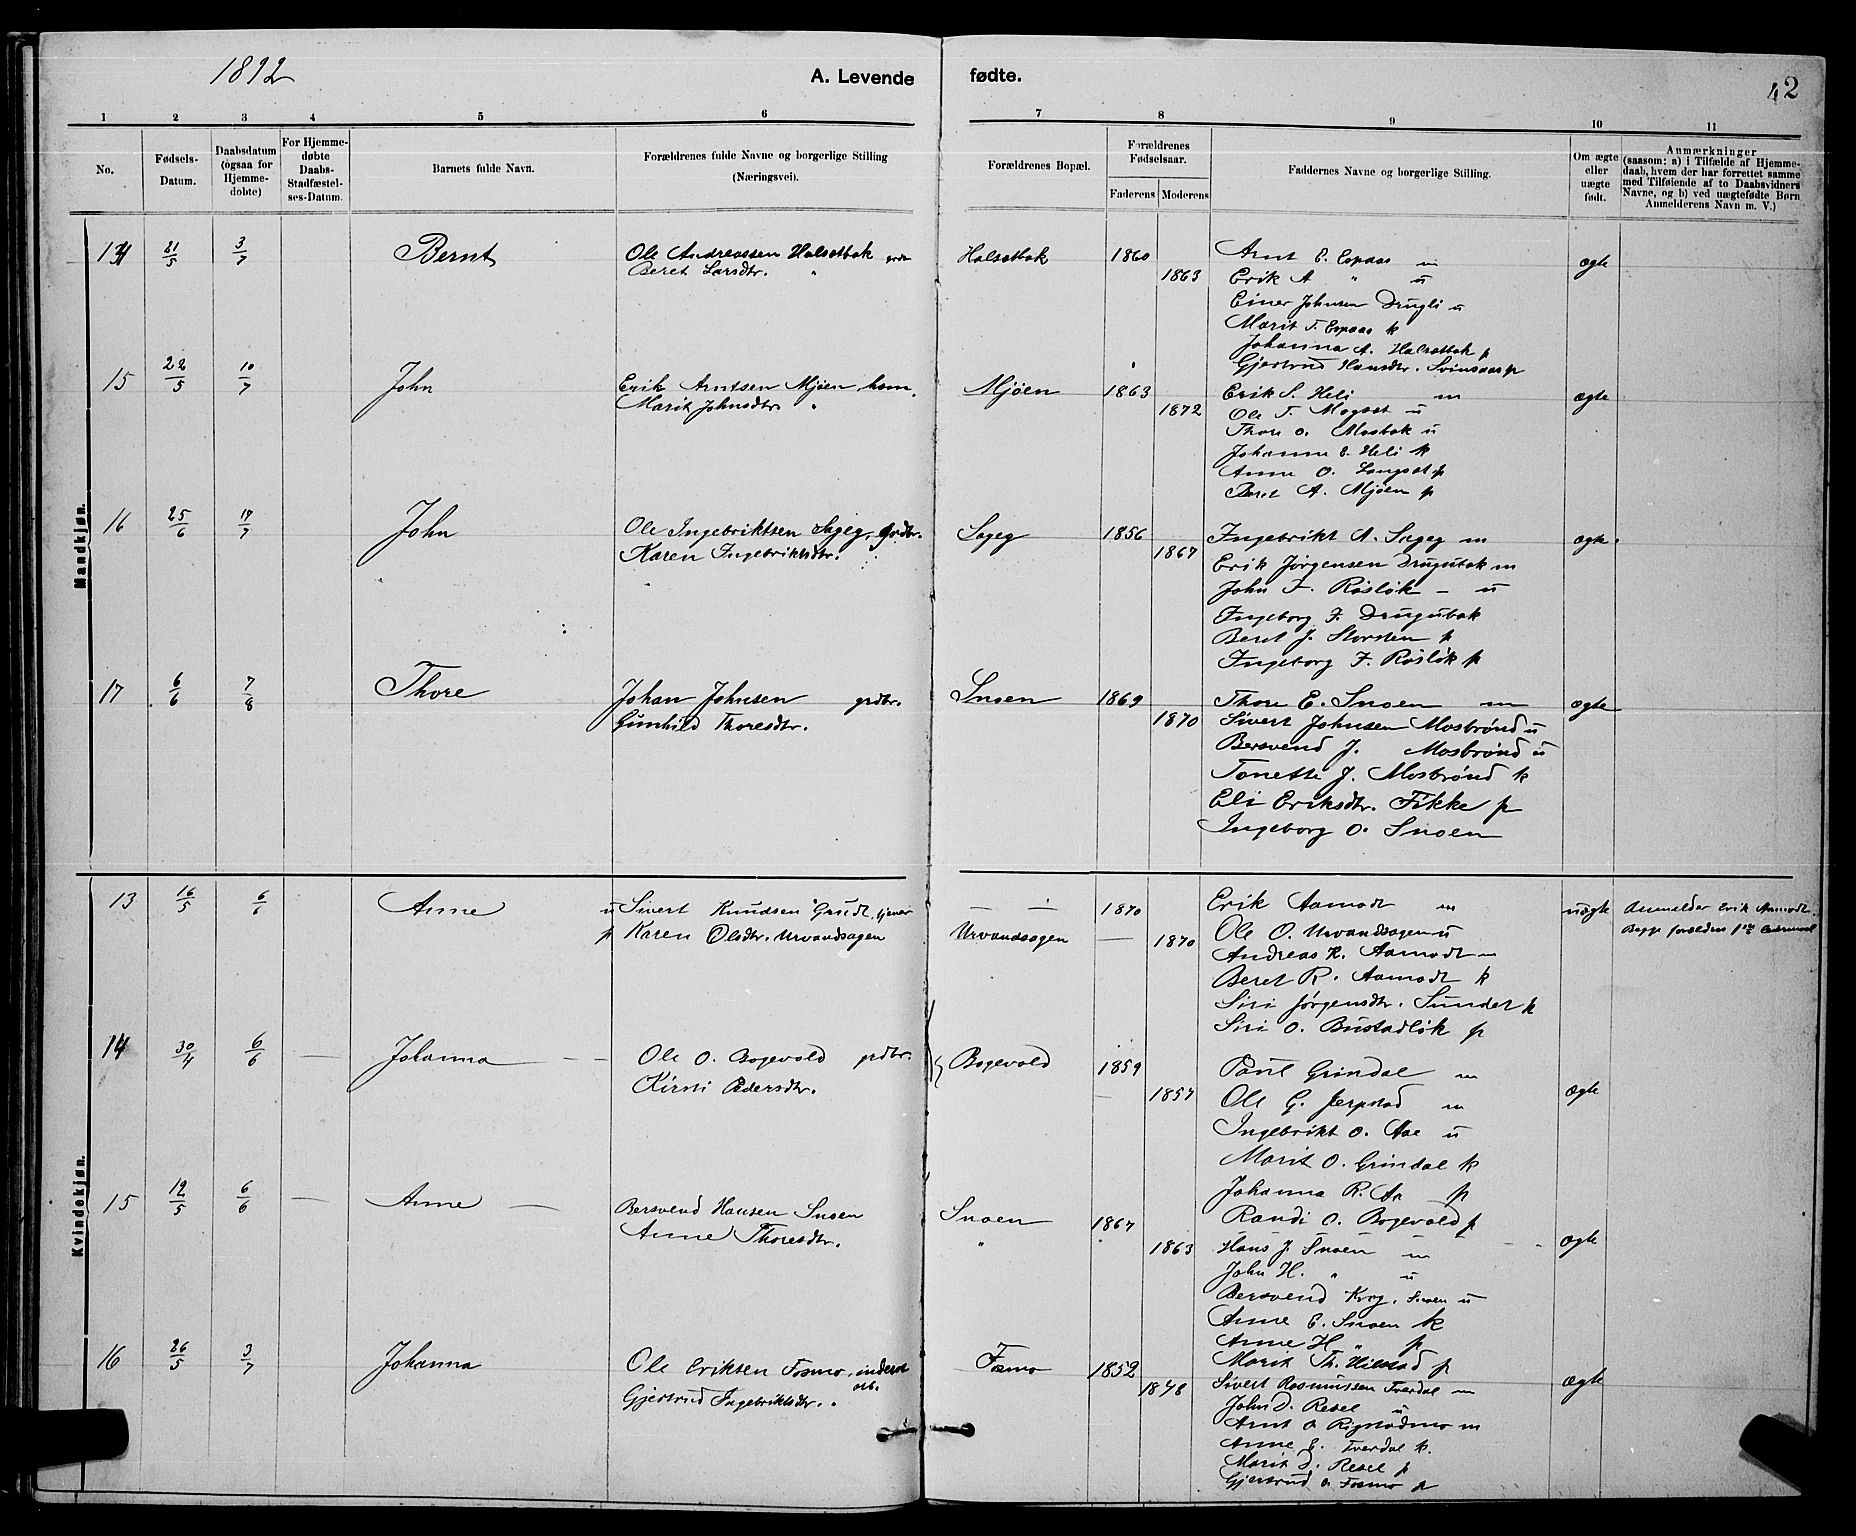 1892
A. Levende fødte.
42
1 2 3 4 5 6 7 8 9 10 11
No.
Fødsels-Datum.
Daabsdatum (ogsaa for Hjemme-døbte)
For Hjemme-døbte Daabs-Stadfæstel-ses-Datum.
Barnets fulde Navn.
Forældrenes fulde Navne og borgerlige Stilling (Næringsvei).
Forældrenes Bopæl.
Forældrenes Fødselsaar.
Faderens Moderens
Faddernes Navne og borgerlige Stilling.
Om ægte eller uægte født.
Anmærkninger (saasom: a) i Tilfælde af Hjemme-daab, hvem der har forrettet samme med Tilføiende af to Daabsvidners Navne, og b) ved uægtefødte Børn Anmelderens Navn m. V.)
Mandkjøn.
14 21/5 3/7 Bernt Ole Andreassen Halsetbak Halsetbak 1860 Arnt E. Espaas m ægte
Beret Larsdtr. " 1863 Erik A " u
Einer Johnsen Drugli u
Marit T. Espaas k
Johanna A. Halsetbak p
Gjertrud Hansdtr. Svinsaas p
15 22/5 10/7 John Erik Arntsen Mjøen, hsm. Mjøen 1863 Erik S. Heli m ægte
Marit Johnsdtr. " 1872 Ole T. Mogset u
Thore O. Mosbak u
Johanne E. Heli k
Anne O. Langset p
Beret A. Mjøen p
16 25/6 17/7 John Ole Ingebriktsen Sageg, Grdbr. Sageg 1856 Ingebrikt A. Sageg m ægte.
Karen Ingebriktsdtr. 1867 Erik Jørgensen Drugubak m
John F. Røsløk - u
Ingeborg F. Drugubak
Beret J. Storsten p
Ingeborg F. Røsløk p
17 6/6 7/8 Thore Johan Johnsen grdbr. Snoen 1869 Thore E. Snoen m ægte
Gunhild Thoresdtr. 1870 Sivert Johnsen Mosbrønd u
Bersvend J. Mosbrønd u
Tonette J. Mosbrønd k
Eli Eriksdtr. Fikke p
Ingeborg O. Snoen
Kvindekjøn.
13 16/5 6/6 Anne u Sivert Knudsen Grudt, tjener - - 1870 Erik Aamodt m uægte Anmelder Erik Aamodt.
p Karen Olsdtr. Urvandsagen Urvandsagen — 1870 Ole O. Urvandsagen u Begge forældres 1ste
Andreas R. Aamodt
Beret R. Aamodt k
Siri Jørgensdtr. Sundet k
Siri O. Bustadløk p
14 30/4 6/6 — Johanna — Ole O. Bogevold grdbr. Bogevold 1859 Paul Grindal m
Kirsti Pedersdtr. — 1857 Ole G. Jerpstad m ægte
Ingebrikt O. Aae u
Marit O. Grindal k
Johanna R. Aa p
Randi O. Bogevold p
15 19/5 6/6 — Anne — Bersvend Hansen Snoen Snoen 1867
Anne Thoresdtr. " 1863 Hans J. Snoen m ægte
John H. " u
Bersvend Krog. Snoen u
Anne E. Snoen k
Anne H " p
Marit Th. Hilstad p
16 26/5 3/7 Johanna Ole Eriksen Fosmo, inderst Fosmo 1852
Gjertrud Ingebriktsdtr. 1848 Sivert Rasmussen Tverdal m ægte
John D. Resel u
Arnt O Rigstadmo m
Anne E. Tverdal k.
Marit D. Resel p
Gjertrud O. Fosmo p